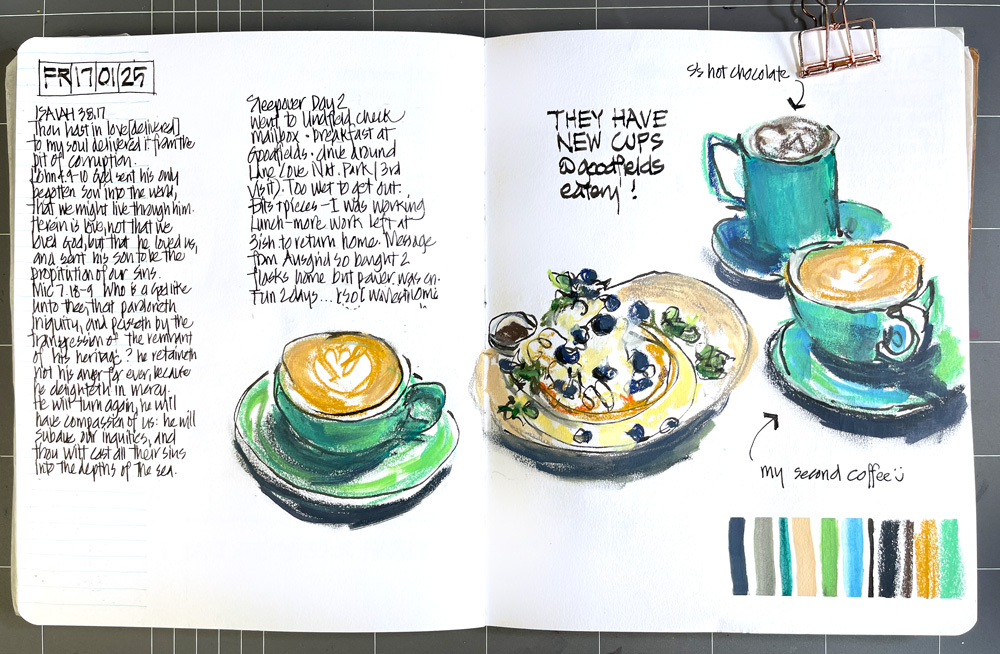 FR 17 01 25
ISAIAH 38.17
Thou hast in love [delivered]
to my soul delivered it from the
pit of corruption.
John 4.9-10 God sent his only
begotten son into the world,
that we might live through him.
Herein is love, not that we
loved God, but that he loved us,
and sent his son to be the
propitution of our sins.
Mic 7.18-9 Who is a God like
unto thee, that pardoneth
iniquity, and passeth by the
transgression of the remnant
of his heritage? he retaineth
not his anger for ever, because
he delighteth in mercy.
He will turn again, he will
have compassion of us: he will
subdue our iniquities, and
thou wilt cast all their sins
into the depths of the sea.
Sleepover Day 2
Went to Lindfield, check
mailbox • breakfast at
goodfields • drive around
Lane Cove Nat. Park (3rd
visit). Too wet to get out.
Bits + pieces - I was working
Lunch - more work left at
3ish to return home. Message
from Ausgrid so bought 2
flasks home but power was on.
Fun 2 days...
THEY HAVE
NEW CUPS
@goodfields
eatery!
S's hot chocolate
my second coffee